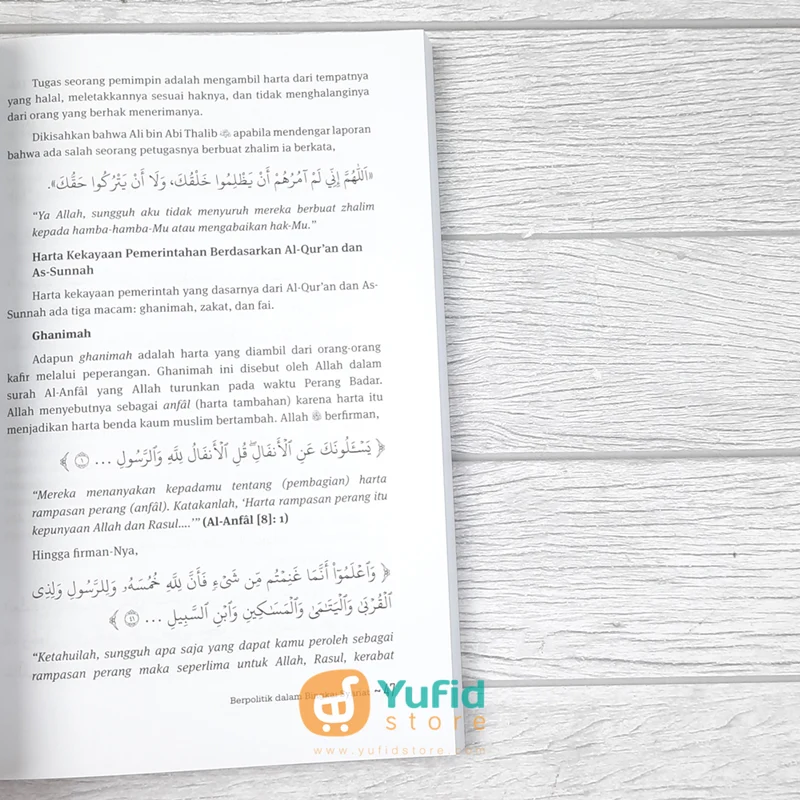 Tugas seorang pemimpin adalah mengambil harta dari tempatnya
yang halal, meletakkannya sesuai haknya, dan tidak menghalanginya
dari orang yang berhak menerimanya.
Dikisahkan bahwa Ali bin Abi Thalib apabila mendengar laporan
bahwa ada salah seorang petugasnya berbuat zhalim ia berkata,
«اَللّٰهُمَّ إِنِّي لَمْ آمُرْهُمْ أَنْ يَظْلِمُوا خَلْقَكَ، وَلَا أَنْ يَتْرُكُوا حَقَّكَ».
“Ya Allah, sungguh aku tidak menyuruh mereka berbuat zhalim
kepada hamba-hamba-Mu atau mengabaikan hak-Mu.”
Harta Kekayaan Pemerintahan Berdasarkan Al-Qur’an dan
As-Sunnah
Harta kekayaan pemerintah yang dasarnya dari Al-Qur’an dan As-
Sunnah ada tiga macam: ghanimah, zakat, dan fai.
Ghanimah
Adapun ghanimah adalah harta yang diambil dari orang-orang
kafir melalui peperangan. Ghanimah ini disebut oleh Allah dalam
surah Al-Anfâl yang Allah turunkan pada waktu Perang Badar.
Allah menyebutnya sebagai anfâl (harta tambahan) karena harta itu
menjadikan harta benda kaum muslim bertambah. Allah ﷻ berfirman,
﴿ يَسْـَٔلُونَكَ عَنِ ٱلْأَنفَالِۖ قُلِ ٱلْأَنفَالُ لِلَّهِ وَٱلرَّسُولِ ... ١ ﴾
“Mereka menanyakan kepadamu tentang (pembagian) harta
rampasan perang (anfâl). Katakanlah, ‘Harta rampasan perang itu
kepunyaan Allah dan Rasul....’” (Al-Anfâl [8]: 1)
Hingga firman-Nya,
﴿ وَٱعْلَمُوٓا۟ أَنَّمَا غَنِمْتُم مِّن شَىْءٍ فَأَنَّ لِلَّهِ خُمُسَهُۥ وَلِلرَّسُولِ وَلِذِى
ٱلْقُرْبَىٰ وَٱلْيَتَـٰمَىٰ وَٱلْمَسَـٰكِينِ وَٱبْنِ ٱلسَّبِيلِ ... ٤١ ﴾
“Ketahuilah, sungguh apa saja yang dapat kamu peroleh sebagai
rampasan perang maka seperlima untuk Allah, Rasul, kerabat
Berpolitik dalam Bingkai Syariat ~ 47
Yufid
store
www.yufidstore.com